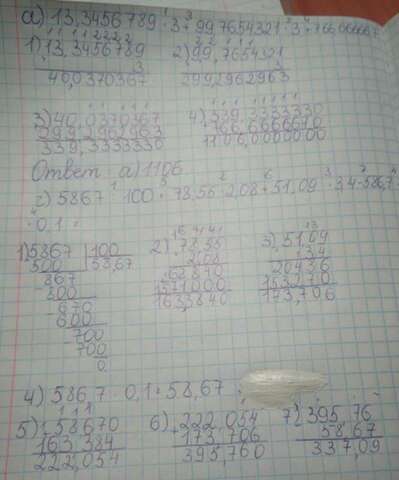 а) 13,3456789 · 3 + 99,7654321 · 3 + 766,66667
1) 13,3456789 2) 99,7654321
3 3
40,0370367 299,2962963
3) 40,0370367 4) 339,3333330
299,2962963 766,6666670
339,3333330 1106,0000000
Ответ а) 1106
г) 5867 : 100 + 78,55 · 2,08 + 51,09 · 3,4 - 586,7 ·
· 0,1
1) 5867 100 2) 78,55 3) 51,09
500 58,67 2,08 3,4
867 62840 20436
800 1571000 153270
670 163,3840 173,706
600
700
700
0
4) 586,7 · 0,1 = 58,67
5) 58,670 6) 222,054 7) 395,76
163,384 173,706 58,67
222,054 395,760 337,09